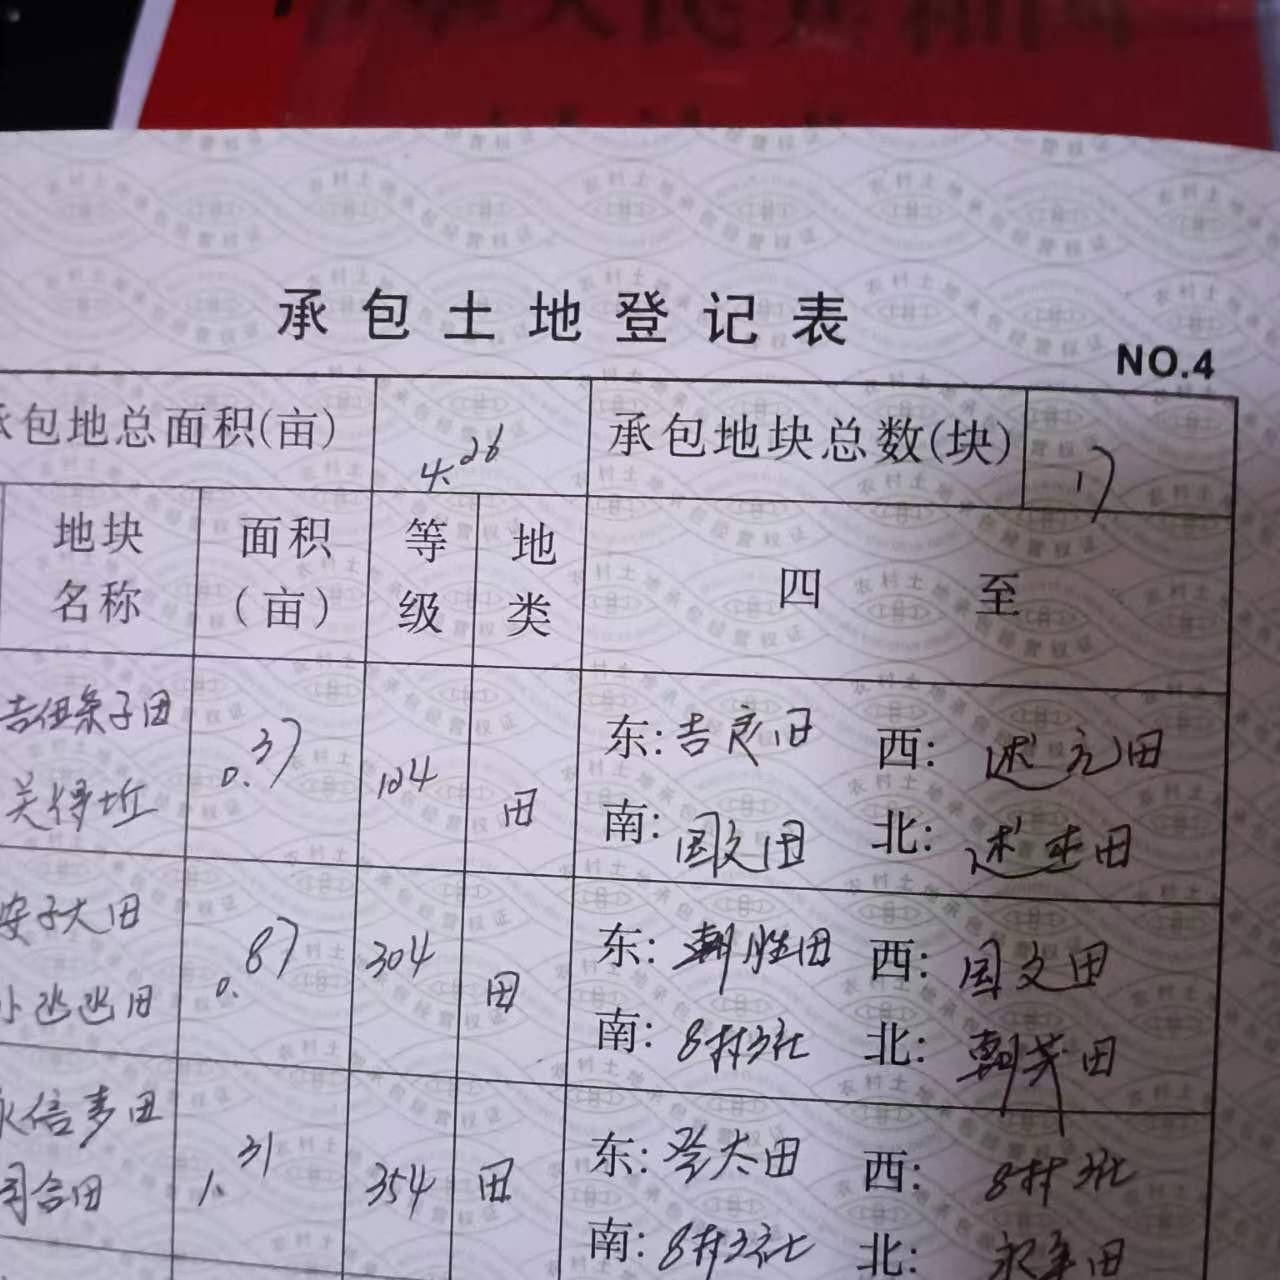 中华人民共和国
承包土地登记表
NO.4
承包地总面积(亩) 4.26 承包地块总数(块) 17
地块名称 面积(亩) 等级 地类 四至
吉伍条子田 0.37 104 田 东: 吉良田 西: 述元田
南: 国文田 北: 述田
安子大田 0.87 304 田 东: 朝胜田 西: 国文田
小凼凼田 南: 8村3社 北: 朝芳田
永信多田 1.31 354 田 东: 登太田 西: 8村3社
合田 南: 8村3社 北: 田